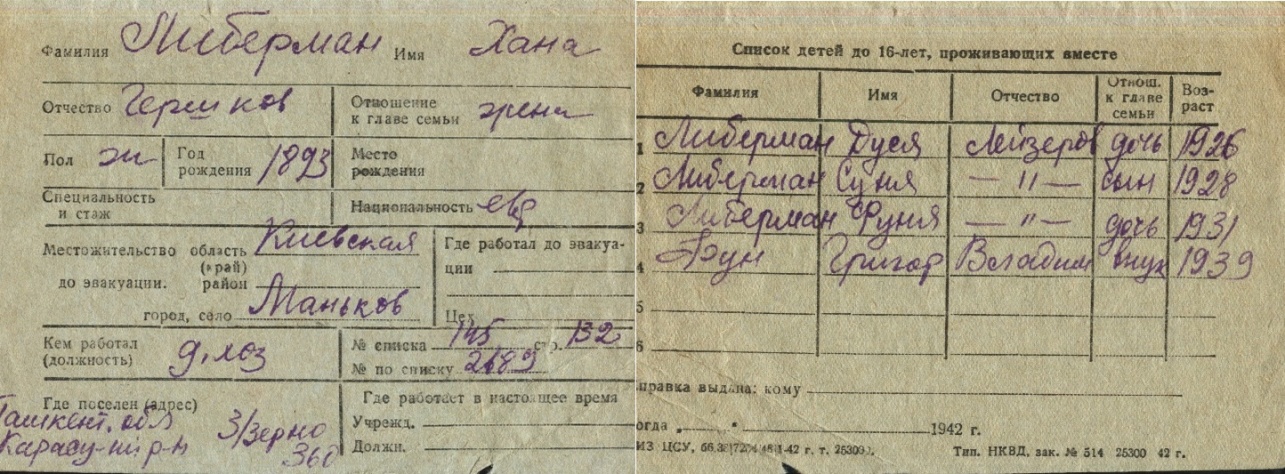 Фамилия Либерман Имя Хана
Отчество Гершков Отношение к главе семьи жена
Пол ж Год рождения 1893 Место рождения
Специальность и стаж Национальность евр
Местожительство область Киевская
(край)
до эвакуации. район
город, село Маньков
Где работал до эвакуации
Цех
Кем работал (должность) д.хоз
№ списка 145 стр. 132
№ по списку 2689
Где поселен (адрес)
Ташкент. обл
Карасу-ный р-н
З/Зерно
360
Где работает в настоящее время
Учрежд.
Должн.
Список детей до 16-лет, проживающих вместе
Фамилия Имя Отчество Отнош. к главе семьи Возраст
1 Либерман Дуся Лейзеров дочь 1926
2 Либерман Суня — " — сын 1928
3 Либерман Фуня — " — дочь 1931
4 Фун Григор Владим внук 1939
5
6
правка выдана: кому
огда „ “ 1942 г.
ИЗ ЦСУ,
Тип. НКВД, зак. № 514 25300 42 г.